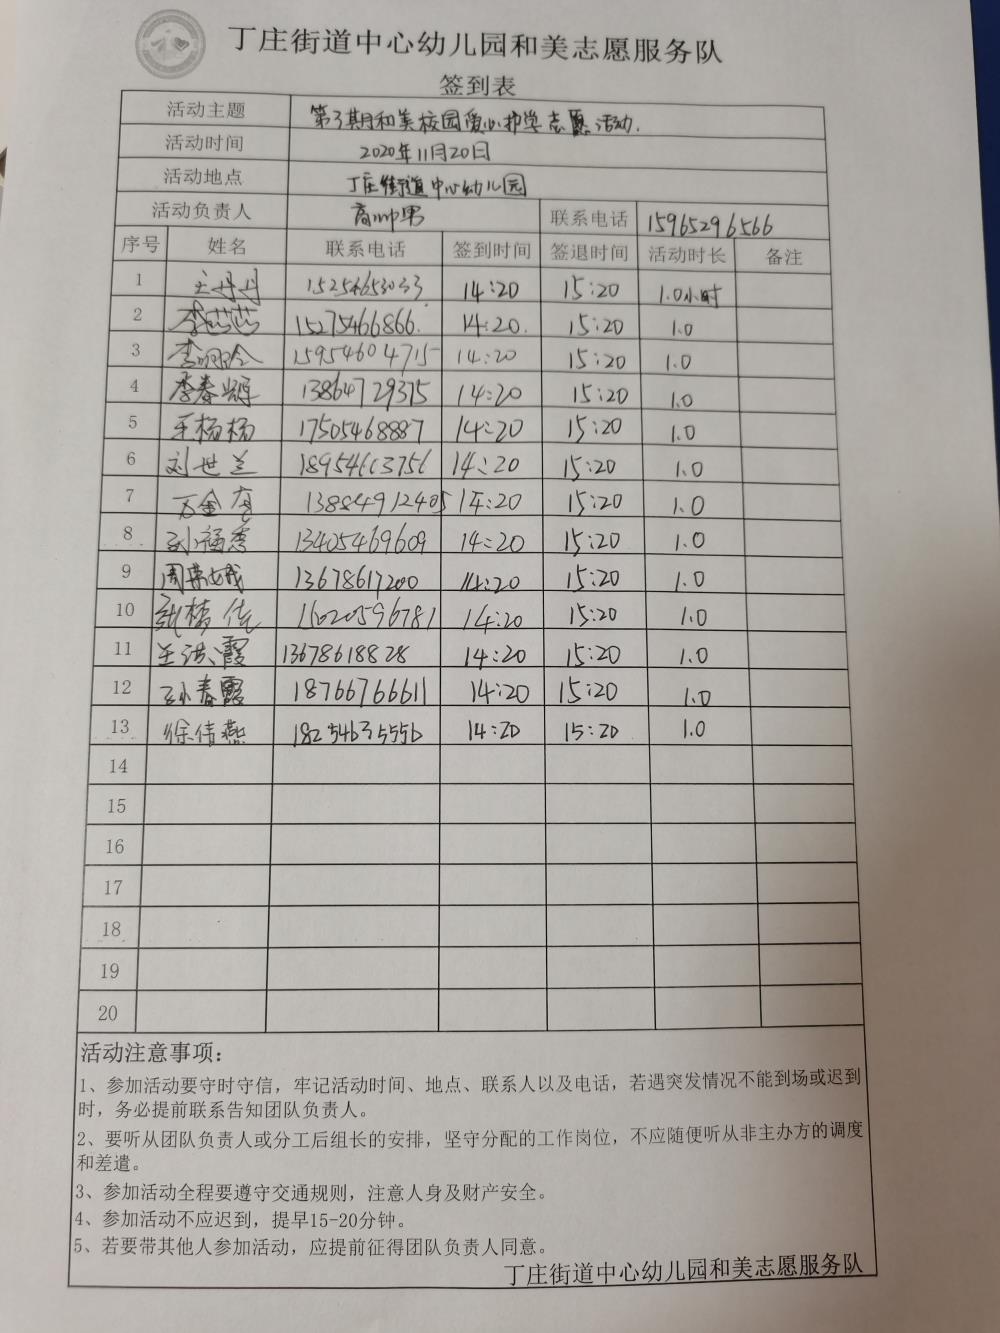 丁庄街道中心幼儿园和美志愿服务队
签到表
活动主题 第3期和美校园爱心护学志愿活动.
活动时间 2020年11月20日
活动地点 丁庄街道中心幼儿园
活动负责人 联系电话 15965296566
序号 姓名 联系电话 签到时间 签退时间 活动时长 备注
1 王丹丹 15254653033 14:20 15:20 1.0小时
2 李芯芯 15275466866. 14:20. 15:20 1.0
3 15954604715 14:20 15:20 1.0
4 李春辉 13864729375 14:20 15:20 1.0
5 王杨杨 17505468887 14:20 15:20 1.0
6 刘世兰 14:20 15:20 1.0
7 13884912405 14:20 15:20 1.0
8 孙福秀 13405469609 14:20 15:20 1.0
9 13678617200 14:20 15:20 1.0
10 14:20 15:20 1.0
11 王洪霞 13678618828 14:20 15:20 1.0
12 孙春霞 18766766611 14:20 15:20 1.0
13 徐倩燕 18254635556 14:20 15:20 1.0
14
15
16
17
18
19
20
活动注意事项：
1、参加活动要守时守信，牢记活动时间、地点、联系人以及电话，若遇突发情况不能到场或迟到
时，务必提前联系告知团队负责人。
2、要听从团队负责人或分工后组长的安排，坚守分配的工作岗位，不应随便听从非主办方的调度
和差遣。
3、参加活动全程要遵守交通规则，注意人身及财产安全。
4、参加活动不应迟到，提早15-20分钟。
5、若要带其他人参加活动，应提前征得团队负责人同意。
丁庄街道中心幼儿园和美志愿服务队